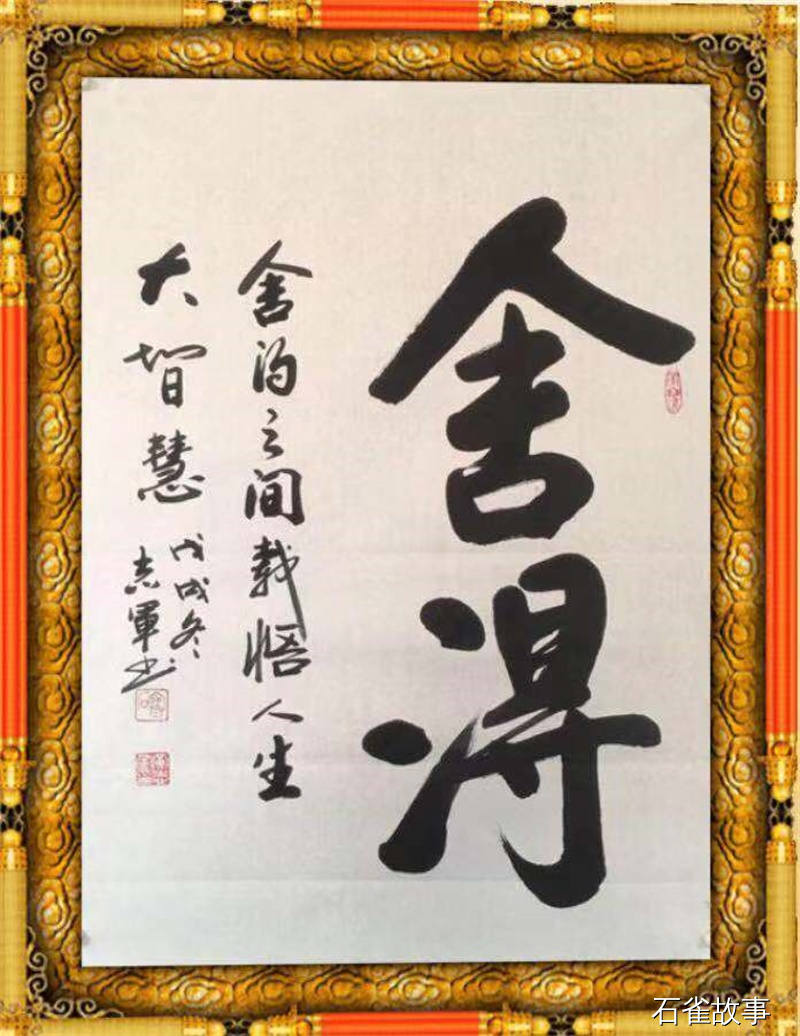 舍得
舍得之间载悟人生
大智慧
戊戌冬
志军书
石雀故事